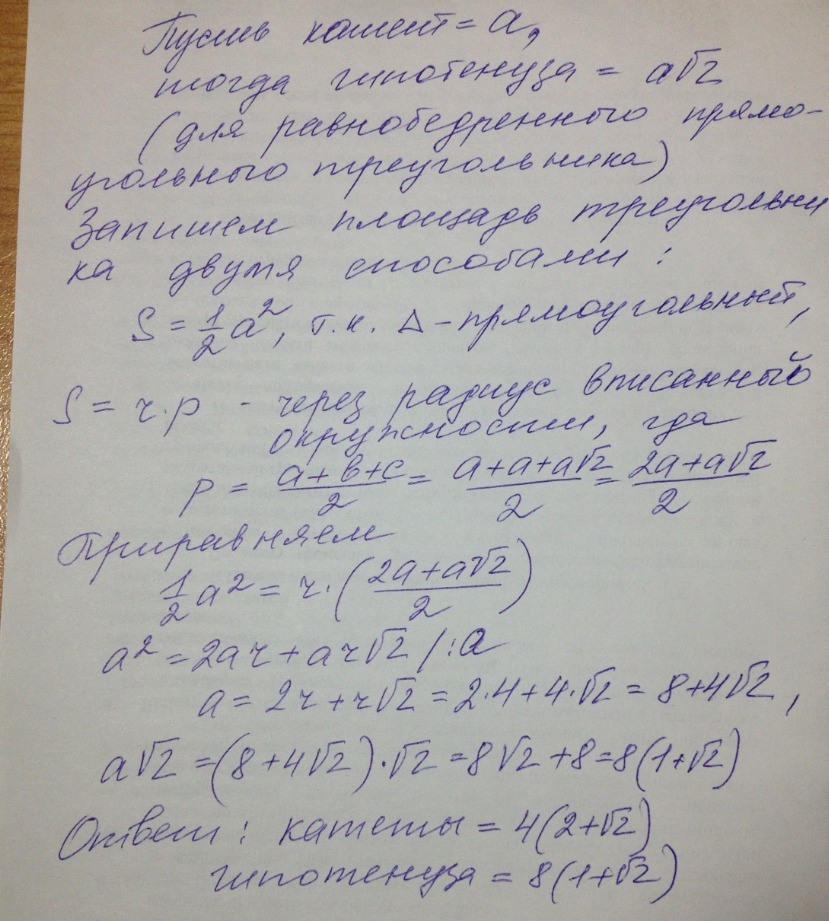 Пусть катет = a,
тогда гипотенуза = a√2
(для равнобедренного прямо-
угольного треугольника)
Запишем площадь треугольни
ка двумя способами:
S = 1/2 a², т.к. Δ - прямоугольный,
S = r·p - через радиус вписанный
окружности, где
p = (a+b+c)/2 = (a+a+a√2)/2 = (2a+a√2)/2
Приравняем
1/2 a² = r·((2a+a√2)/2)
a² = 2ar + ar√2 /:a
a = 2r + r√2 = 2·4+4·√2 = 8+4√2,
a√2 = (8+4√2)·√2 = 8√2+8=8(1+√2)
Ответ: катеты = 4(2+√2)
гипотенуза = 8(1+√2)